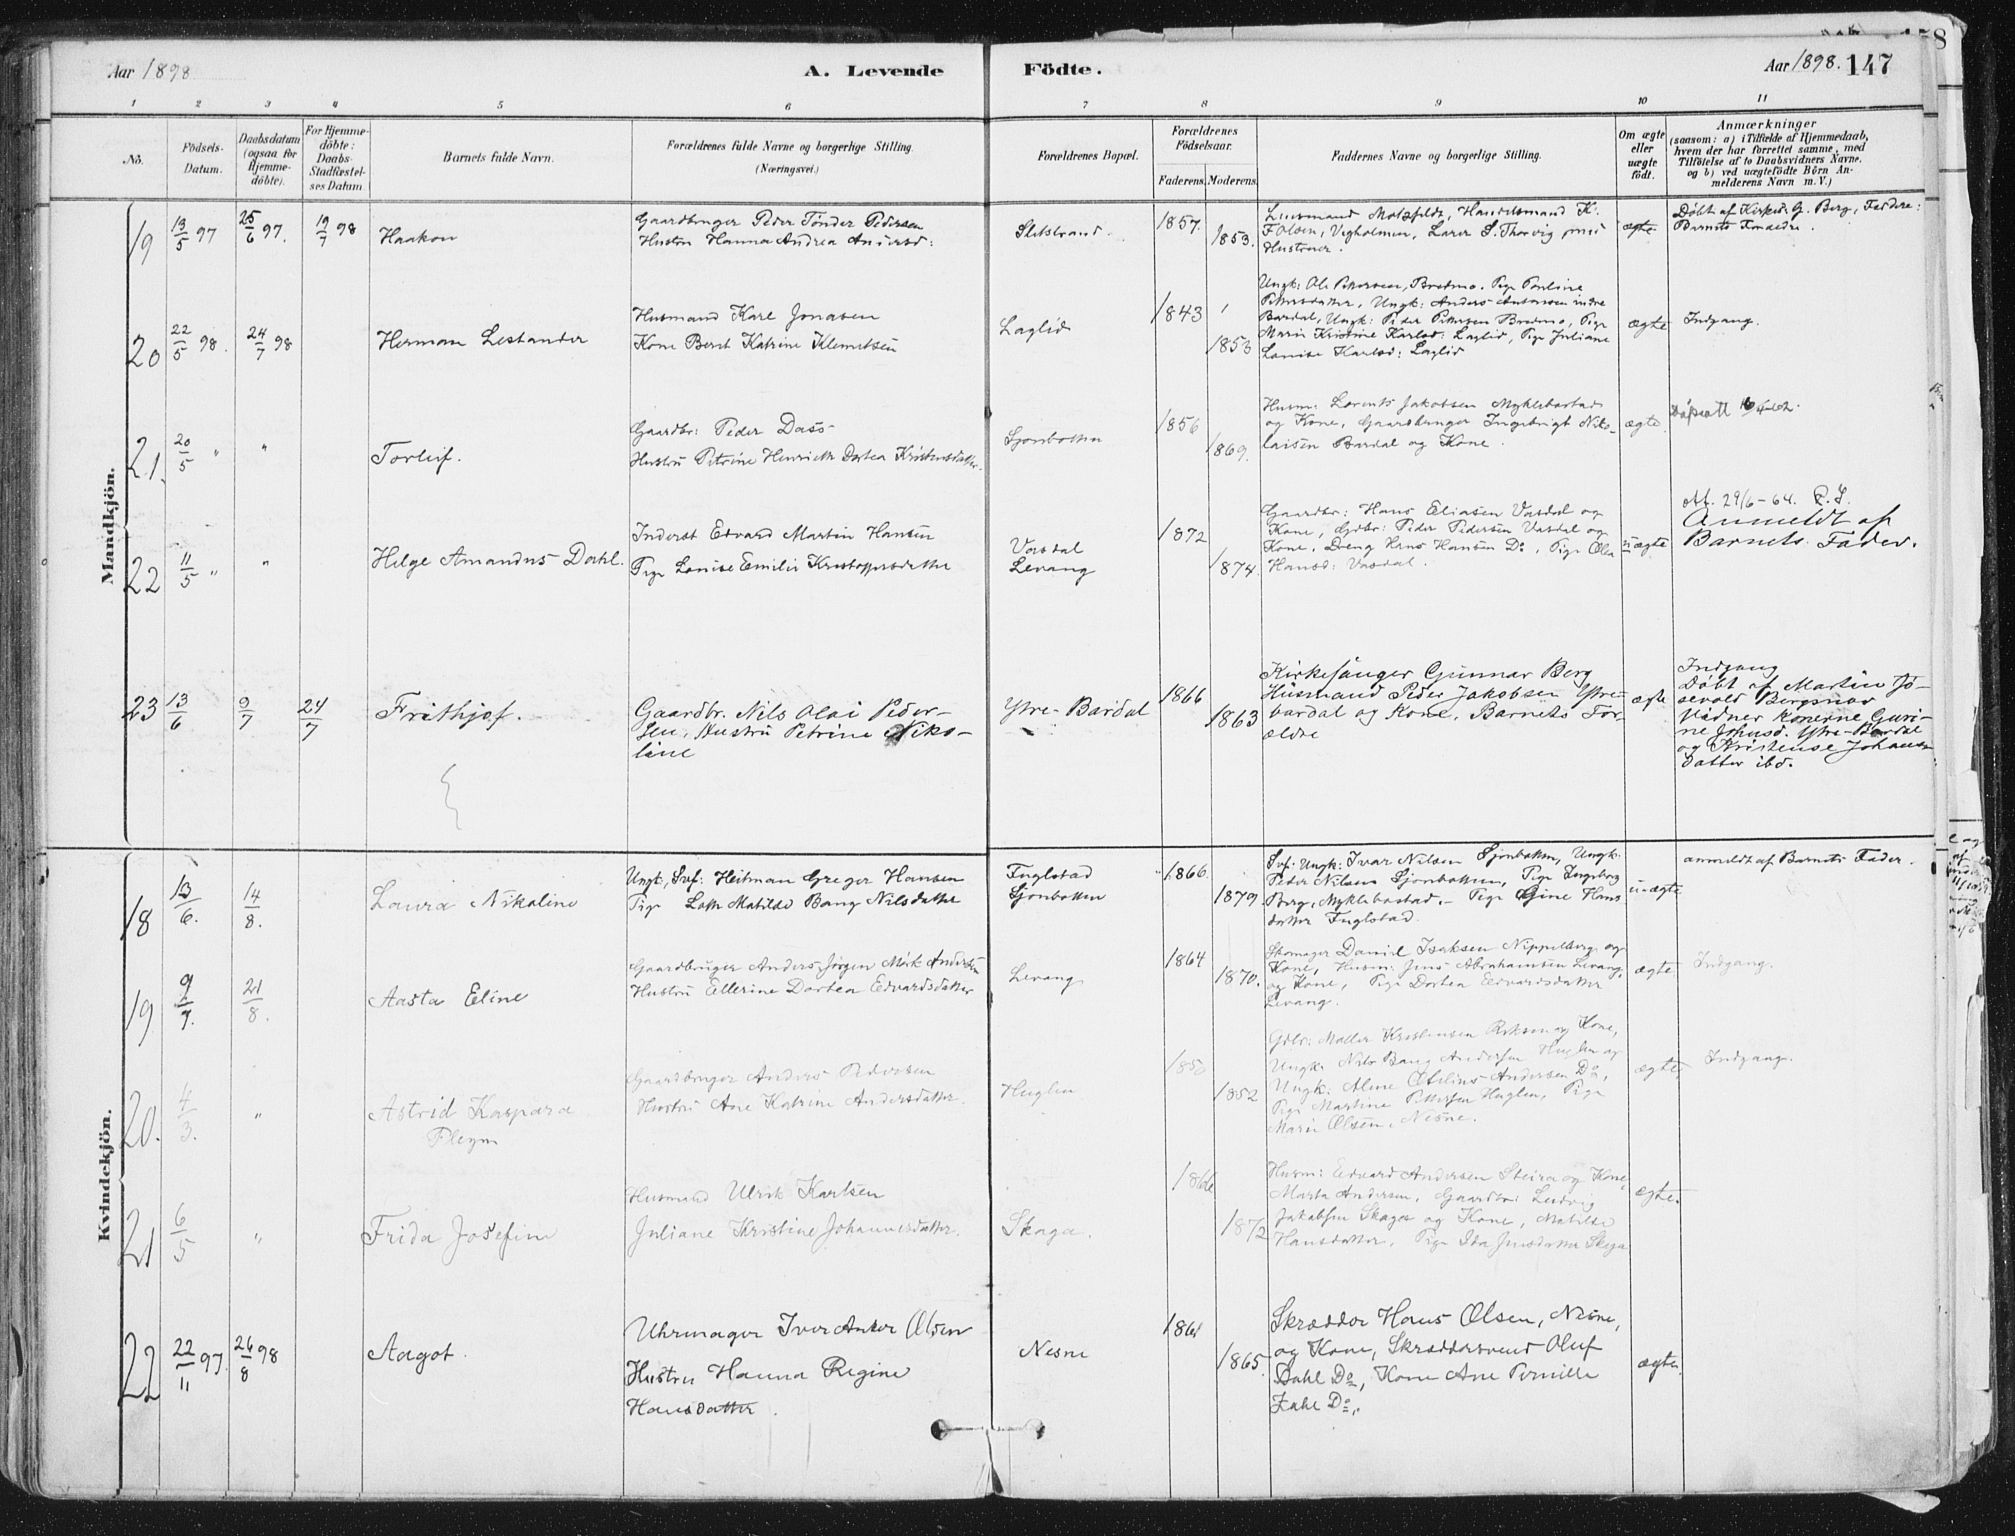 Aar 1898
A. Levende
Födte.
Aar 1898. 147
158
1 2 3 4 5 6 7 8 9 10 11
No.
Födsels-Datum.
Daabsdatum (ogsaa for Hjemme-döbte).
For Hjemme-döbte: Daabs-Stadfæstel-ses Datum
Barnets fulde Navn.
Forældrenes fulde Navne og borgerlige Stilling. (Næringsvei.)
Forældrenes Bopæl.
Forældrenes Födselsaar.
Faderens. Moderens.
Faddernes Navne og borgerlige Stilling.
Om ægte eller uægte födt.
Anmærkninger
(saasom: a) i Tilfælde af Hjemmedaab,
hvem der har forrettet samme, med
Tilföielse af to Daabsvidners Navne.
og b) ved uægtefödte Börn An-
melderens Navn m. V.)
Mandkjön.
19 13/5 97 25/6 97. 19/7 98 Haakon
Gaardbruger Peder Tönder Pedersen
Hustru Hanna Andrea Andersd:
Slitstrand. 1857. 1853.
Lensmand Motzfeldt, Handelsmand K.
F. Olsen, Vegholmen, Lærer S. Thorvig med
Hustruer.
ægte
Döbt af Kirkes: G. Berg, Faddere:
Barnets Forældre.
20 22/5 98. 24/7 98 Herman Lestander
Husmand Karl Jonasen
Kone Berit Katrine Klemetsen
Laglid 1843 1853
Ungk: Ole Petersen, Bredmo. Pige Pauline
Petersdatter, Ungk: Anders Antonsen indre
Bardal, Ungk: Peder Petersen Bredmo, Pige
Marie Kristine Karlsd: Laglid, Pige Juliane
Lovise Karlsd: Laglid
ægte Indgang.
21. 20/5 " " Torleif.
Gaardbr: Peder Dass
Hustru Petrine Henriette Dortea Kristensdatter.
Sjonbotten 1856 1869.
Husm: Lorents Jakobsen Myklebostad
og Kone, Gaardbruger Ingebrigt Niko-
laisen Bardal og Kone.
ægte.
22 11/5 " " Helge Amandus Dahl.
Inderst Edvard Martin Hansen
Pige Lovise Emilie Kristoffersdatter
Vasdal
Levang
1872 1874.
Gaardbr: Hans Eliasen Vasdal og
Kone, Gdbr: Peder Pedersen Vasdal og
Kone, Dreng Hans Hansen Do, Pige Ola
Hansd: Vasdal.
uægte
At. 29/6-64. P.S.
Anmeldt af
Barnets Fader.
23 13/6 9/7 24/7 Frithjof.
Gaardbr. Nils Olai Peder-
sen, Hustru Petrine Niko-
line
Ytre-Bardal 1866 1863
Kirkesanger Gunnar Berg
Husmand Peder Jakobsen Ytre-
bardal og Kone, Barnets For-
ældre
ægte
Indgang
Döbt af Martin Jo-
sevold Bergsnov
Vidner Konerne Guri-
ne Johnsd. Ytre-Bardal
og Kristense Johans-
datter ibd.
Kvindekjön.
18 13/6. 14/8. Laura Nikoline
Ungk, Svf: Heitman Greger Hansen
Pige Lotte Matilde Bang Nilsdatter
Fuglstad
Sjonbotten
1866. 1879.
Svf: Ungk: Ivar Nilsen Sjonbotten, Ungk:
Peder Nilsen Sjonbotten, Pige Ingeborg
Berg, Myklebostad. - Pige Gine Hans
datter Fuglstad.
uægte
anmeldt af Barnets Fader.
19 9/7. 21/8. Aasta Eline
Gaardbruger Anders Jørgen Mörk Andersen
Hustru Ellerine Dortea Edvardsdatter
Levang 1864 1870.
Skomager Daniel Isaksen Nippelberg og
Kone, Husm: Jens Abrahamsen Levang,
og Kone, Pige Dortea Edvardsdatter
Levang.
ægte Indgang.
20. 4/3. " Astrid Kaspara
Pleym
Gaardbruger Anders Pedersen
Hustru Ane Katrine Andersdatter.
Huglen 1850 1852
Gdbr: Møller Kristensen Reksen og Kone,
Ungk: Nils Bang Andersen Huglen og
Ungk: Aline Otelius Andersen Do,
Pige Martine Pettersen Huglen, Pige
Marie Olsen, Nesne.
ægte. Indgang.
21 6/5 " Frida Josefine
Husmand Ulrik Karlsen
Juliane Kristine Johannesdatter.
Skaga. 1866 1872
Husm: Edvard Andersen Steira og Kone,
Marta Andersen, Gaardbr: Ludvig
Jakobsen Skaga og Kone, Matilde
Hansdatter, Pige Ida Jensdatter Skaga
ægte.
22 22/11 97. 26/8 98 Aagot.
Uhrmager Iver Anker Olsen
Hustru Hanna Regine
Hansdatter.
Nesne 1861 1865.
Skrædder Hans Olsen, Nesne,
og Kone, Skræddersvend Oluf
Dahl Do, Kone Ane Pernille
Zahl Do.
ægte.